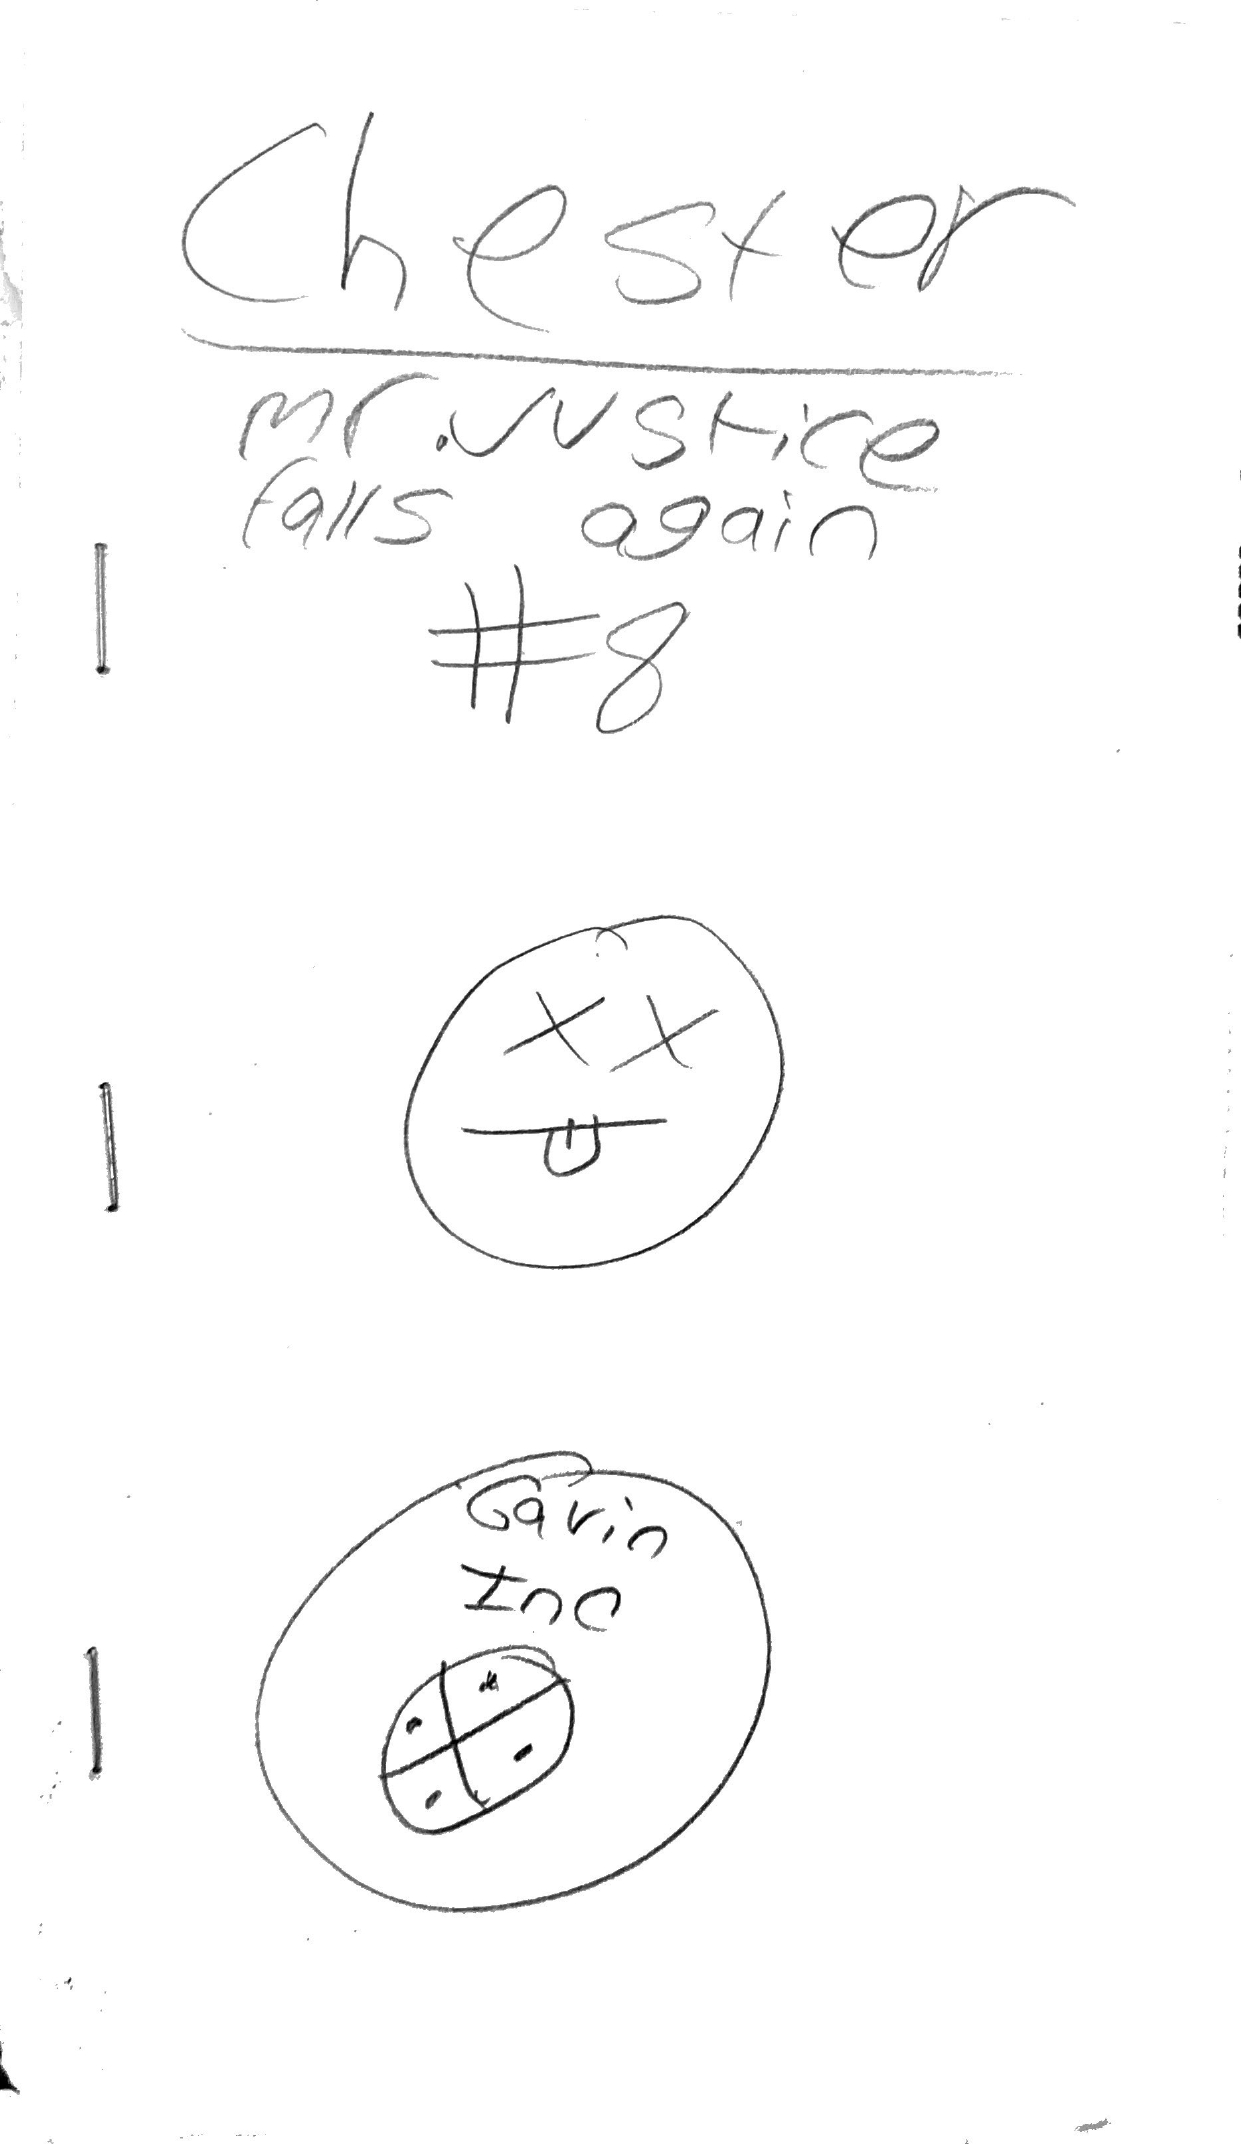 Chester
Mr. Justice
falls again
#8
Gavin
Inc